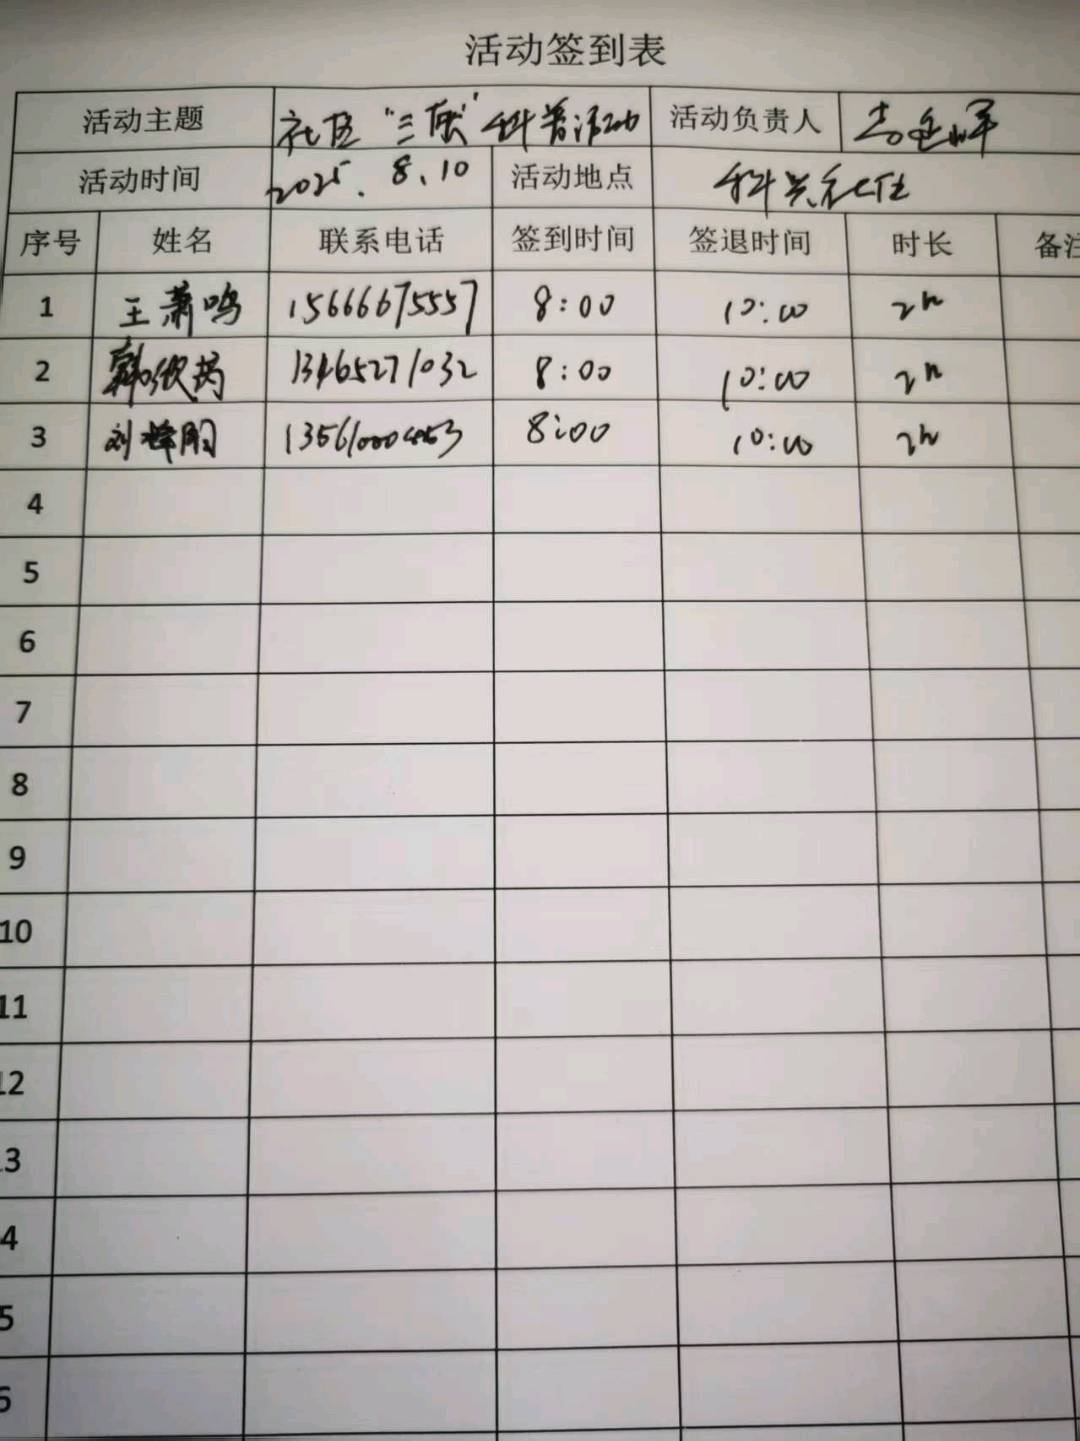 活动签到表
活动主题 社区“三废”科普活动 活动负责人
活动时间 2025.8.10 活动地点 科苑社区
序号 姓名 联系电话 签到时间 签退时间 时长 备注
1 王萧鸣 15666675557 8:00 10:00 2h
2 韩欣芮 13465271032 8:00 10:00 2h
3 刘 8:00 10:00 2h
4
5
6
7
8
9
10
11
12
13
4
5
6